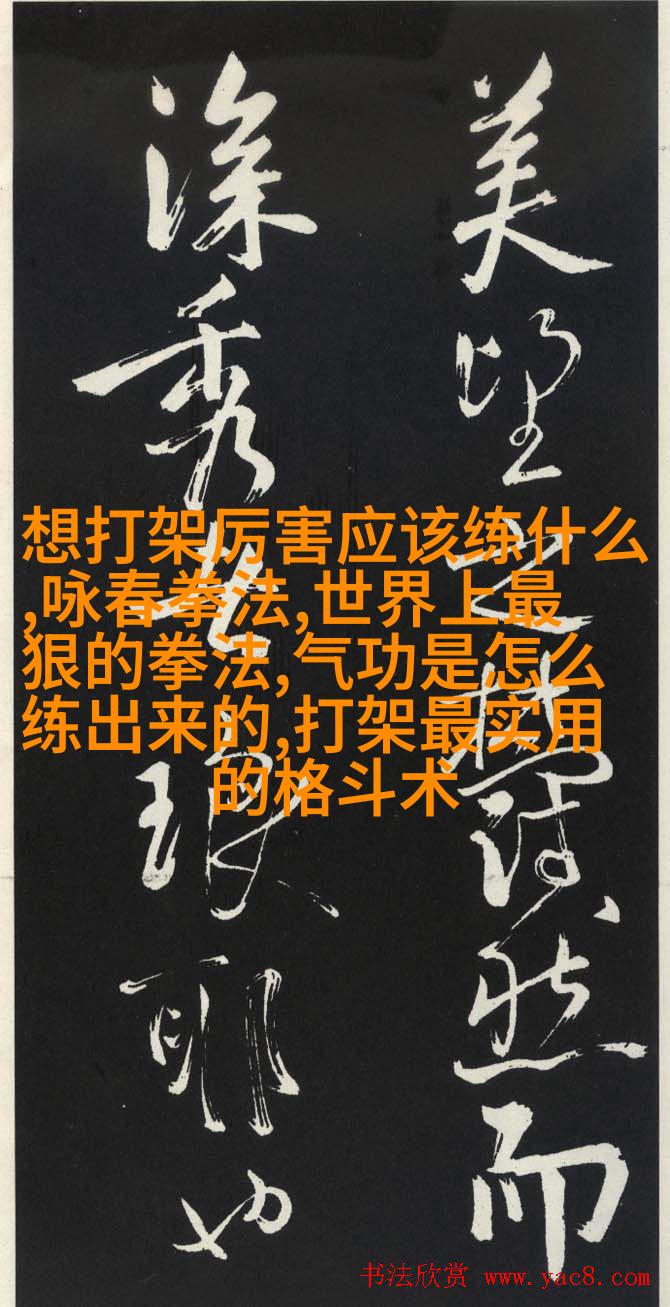 美望之蔚然而
深秀者琅耶也
想打架厉害应该练什么
,咏春拳法,世界上最
狠的拳法,气功是怎么
练出来的,打架最实用
的格斗术
书法欣赏 www.yac8.com